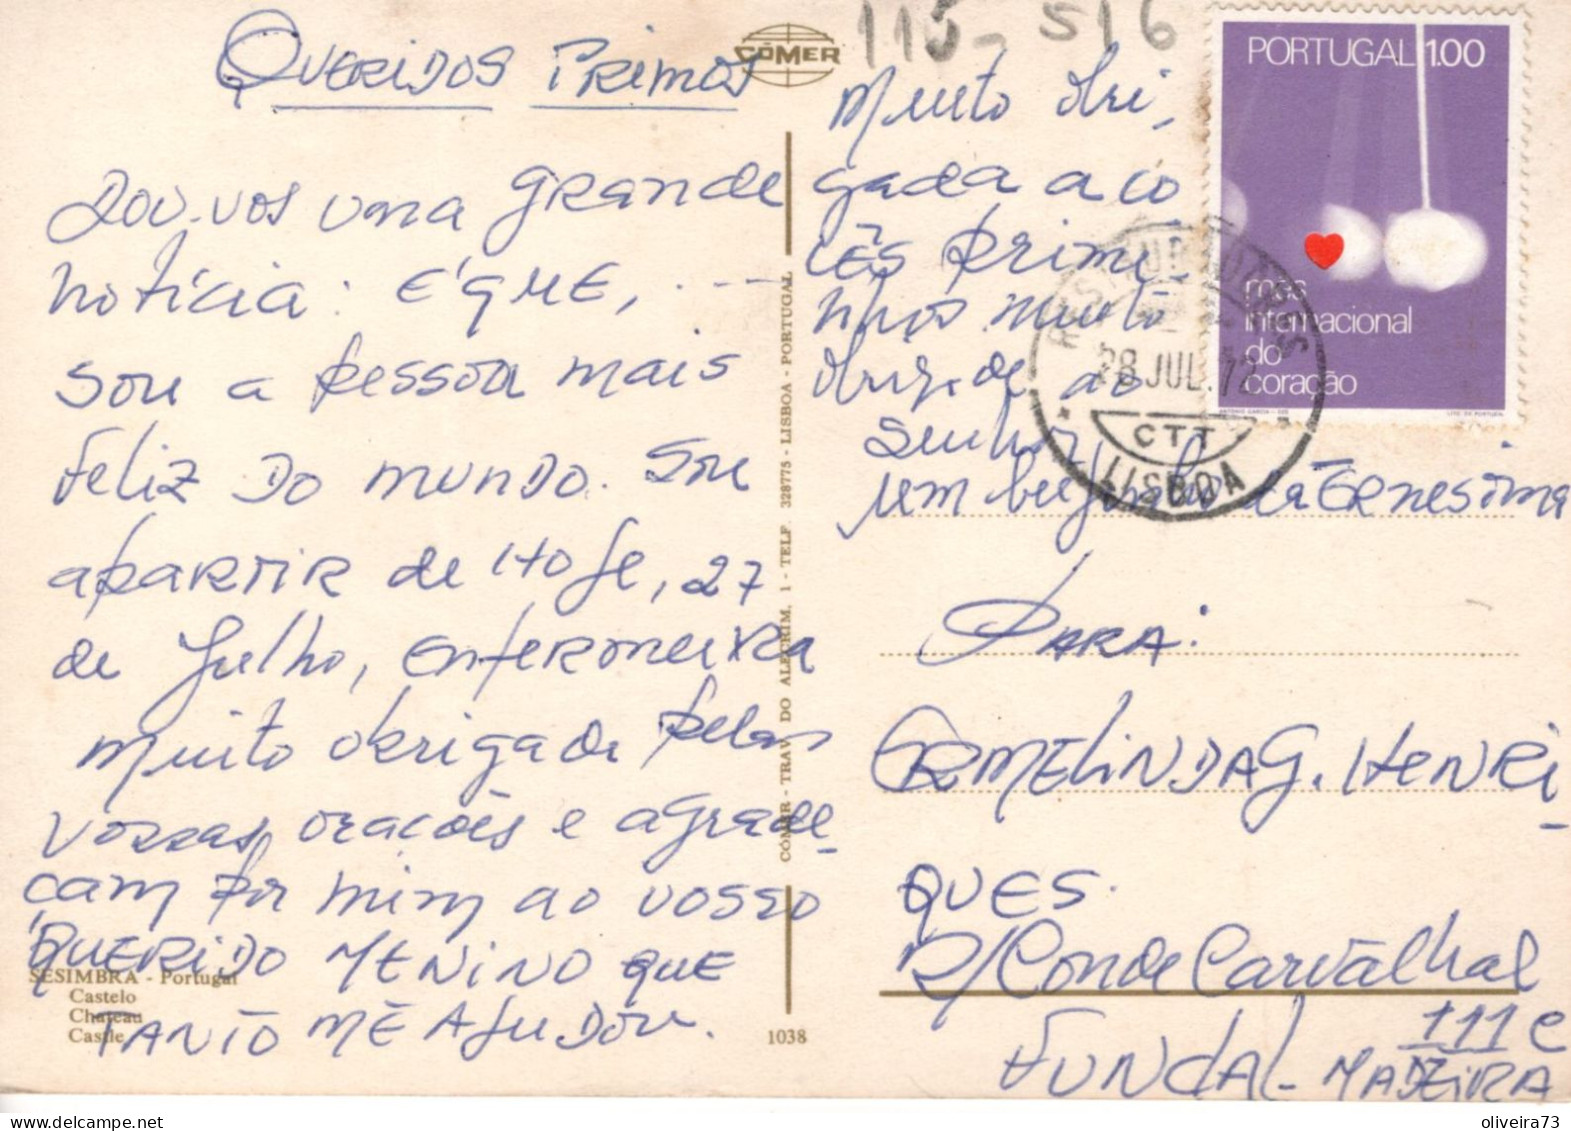 115-516
CÔMER
QUERIDOS PRIMOS
DOU-VOS UMA GRANDE
NOTÍCIA: É QUE, ...
SOU A PESSOA MAIS
FELIZ DO MUNDO. SOU
APARTIR DE HOJE, 27
de Julho, ENFERMEIRA
MUITO obrigada pelas
vossas orações e agrade-
çam por mim ao vosso
QUERIDO MENINO QUE
TANTO ME AJUDOU.
Muito obri-
gada aco
cês primi-
nhos muito
ao
Senhor
um beijinho da ERNESTINA
PARA:
ERMELINDA G. HENRI-
QUES.
R/Conde Carvalhal
111 e
FUNCHAL - MADEIRA
PORTUGAL 1.00
mês
internacional
do
coração
ANTÓNIO GARCIA
LITO. DE PORTUGAL
RESTAURADORES
28 JUL. 72
CTT
LISBOA
CÓMER - TRAV. DO ALECRIM, 1 - TELF. 328775 - LISBOA - PORTUGAL
SESIMBRA - Portugal
Castelo
Chateau
Castle
1038
oliveira73